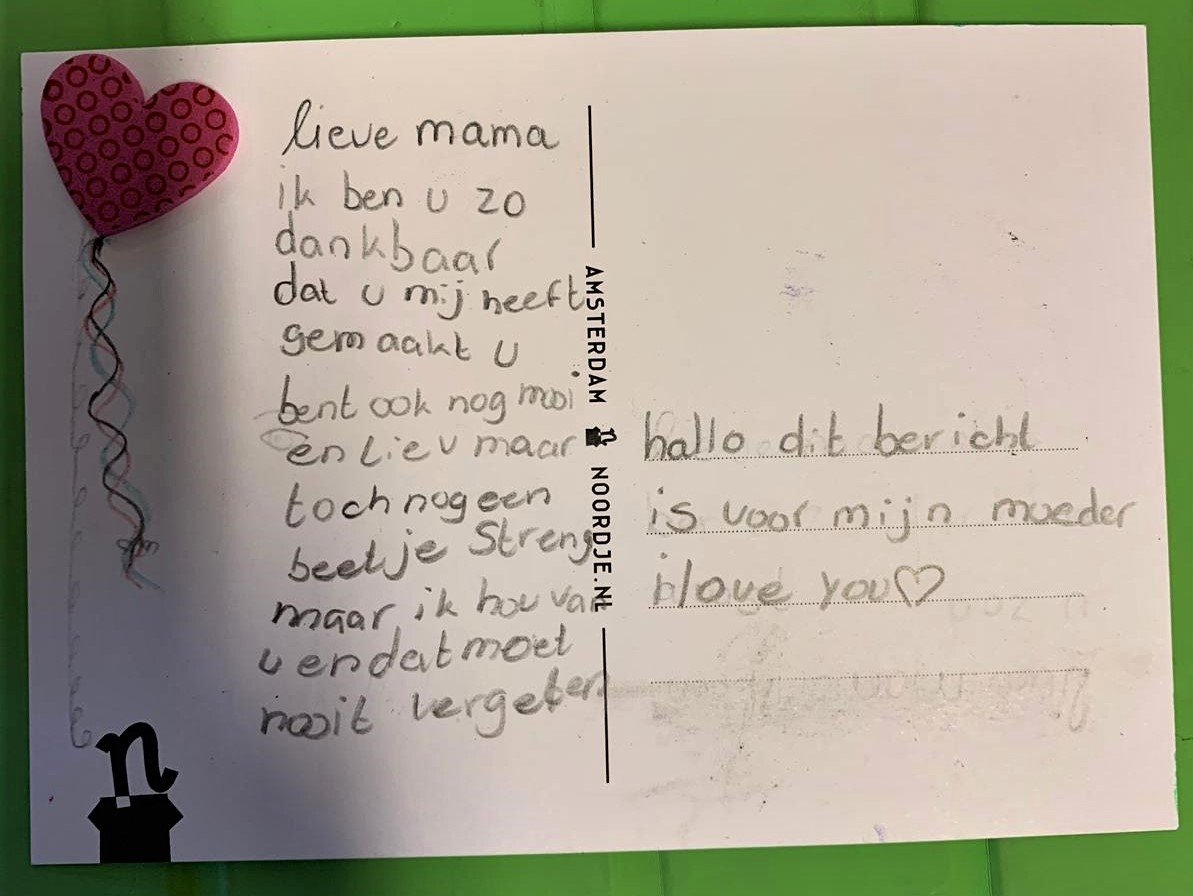 lieve mama
ik ben u zo
dankbaar
dat u mij heeft
gemaakt u
bent ook nog mooi
en lie u maar
toch nog een
beetje Streng
maar ik hou van
u en dat moet
nooit vergeten
AMSTERDAM n NOORDJE.NL
hallo dit bericht
is voor mijn moeder
i love you♡
n